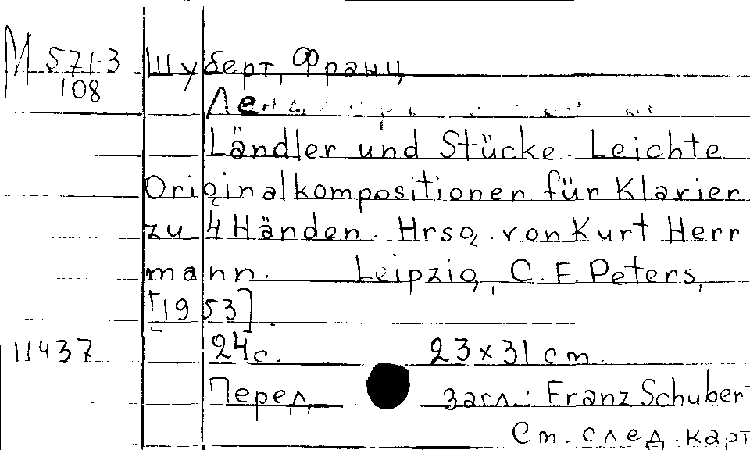 М 571-3 Шуберт, Франц
108
Ländler und Stücke. Leichte
Originalkompositionen für Klavier
zu 4 Händen. Hrsg. von Kurt Herr
mann. Leipzig, C. F. Peters,
[1953].
11437 24 с. 23x31 см.
Перед. загл.: Franz Schuber
См. след. карт